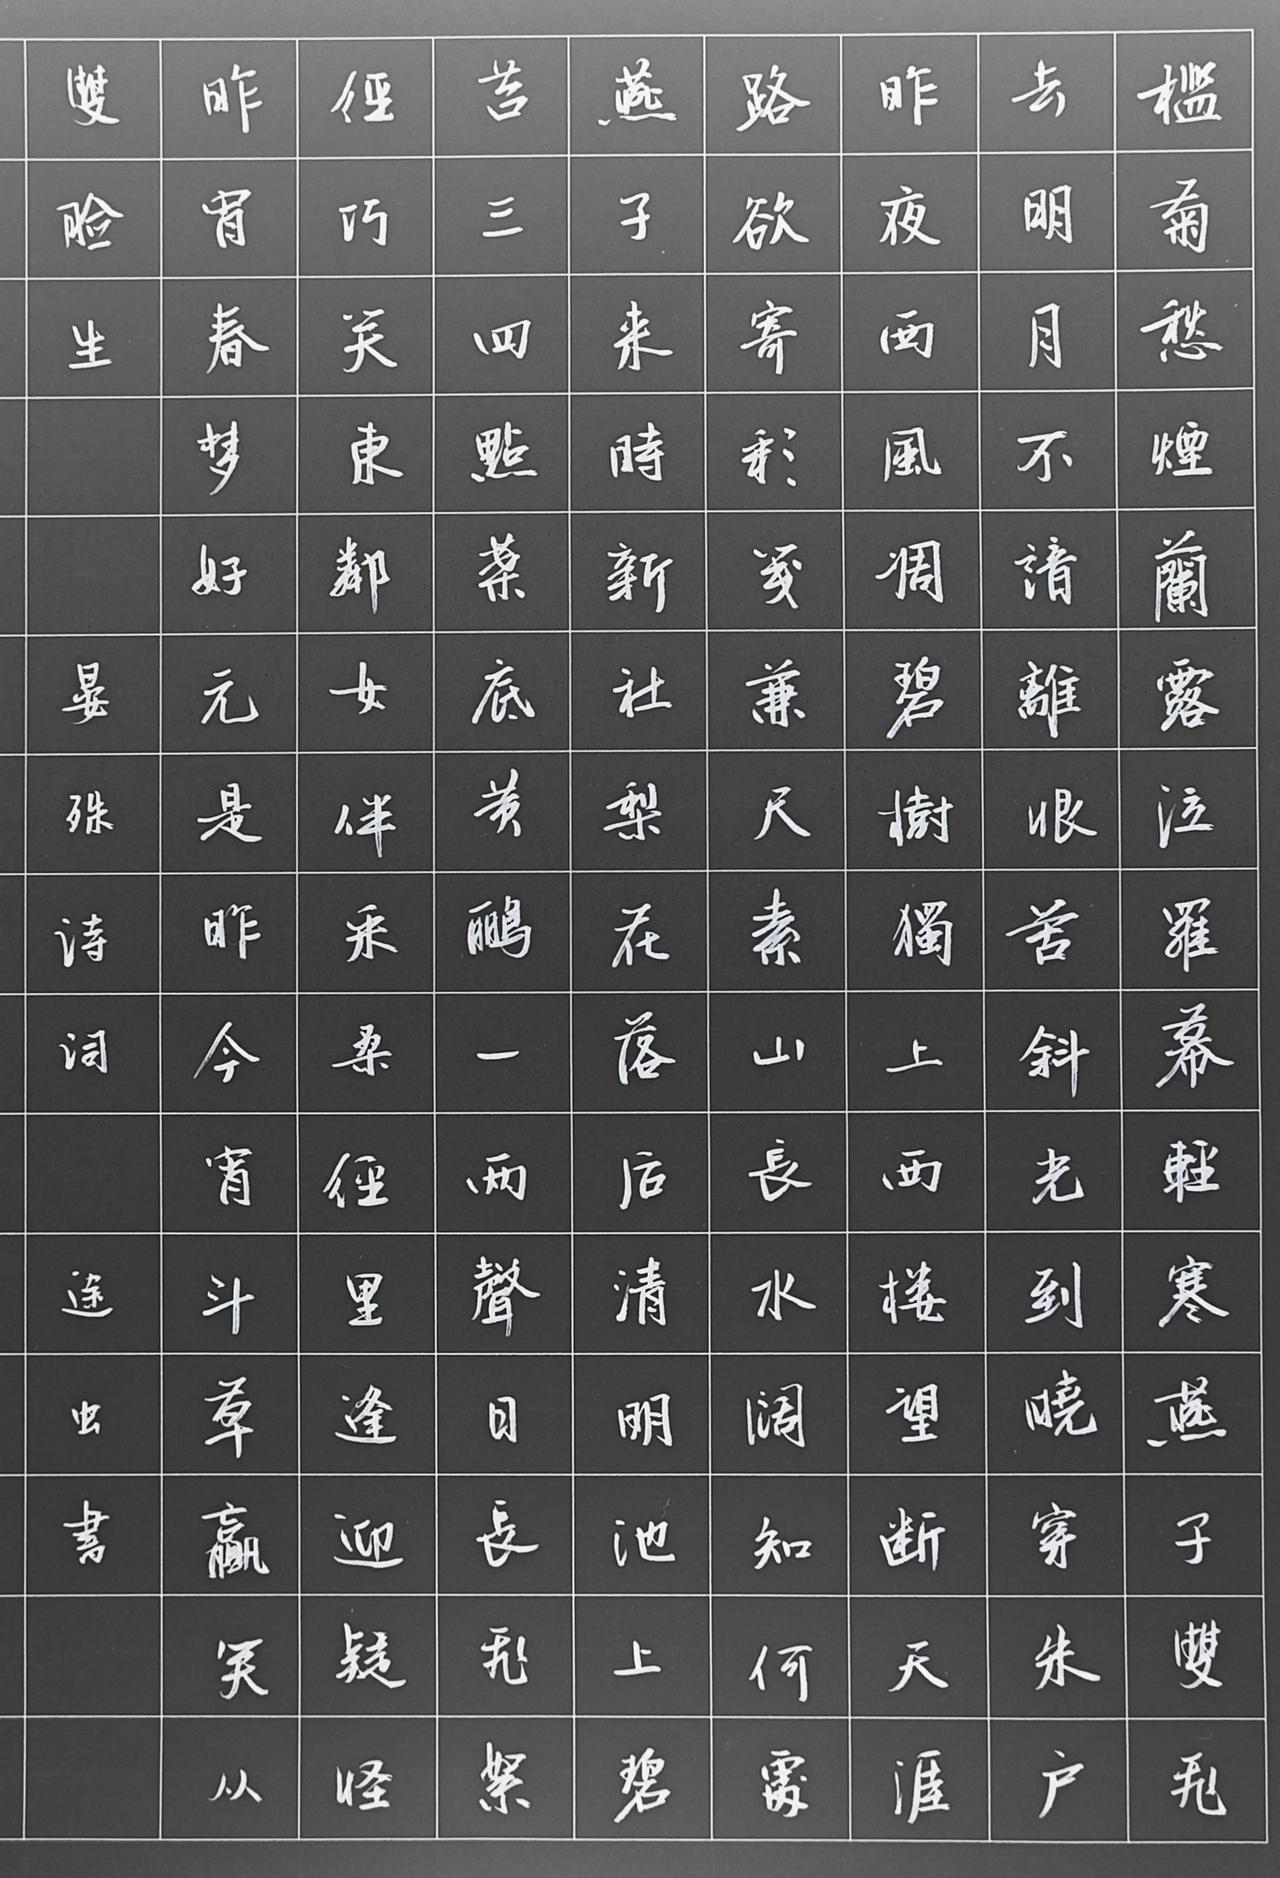 檻菊愁煙蘭露泣羅幕輕寒燕子雙飛
去明月不諳離恨苦斜光到曉穿朱户
昨夜西風凋碧樹獨上西楼望断天涯
路欲寄彩箋兼尺素山長水阔知何處
燕子来時新社梨花落后清明池上碧
苔三四點葉底黄鹂一两聲日長飛絮
輕巧笑東鄰女伴采桑徑里逢迎疑怪
昨宵春梦好元是昨今宵斗草贏笑从
雙脸生晏殊诗词途虫書